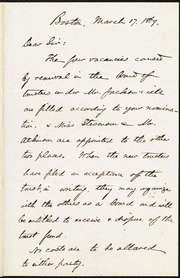 Boston, March 17. 1869.
Dear Sir:
The few vacancies caused
by removal in the Board of
trustees under Mr. Jackson's will
are filled according to your nomina-
tion. & Miss Stevenson & Mr.
Atkinson are appointed to the other
two places. When the new trustees
have filed an acceptance of the
trust, in writing, they may organize
with the others as a Board and will
be entitled to receive & dispose of the
trust fund.
No costs are to be allowed
to either party.